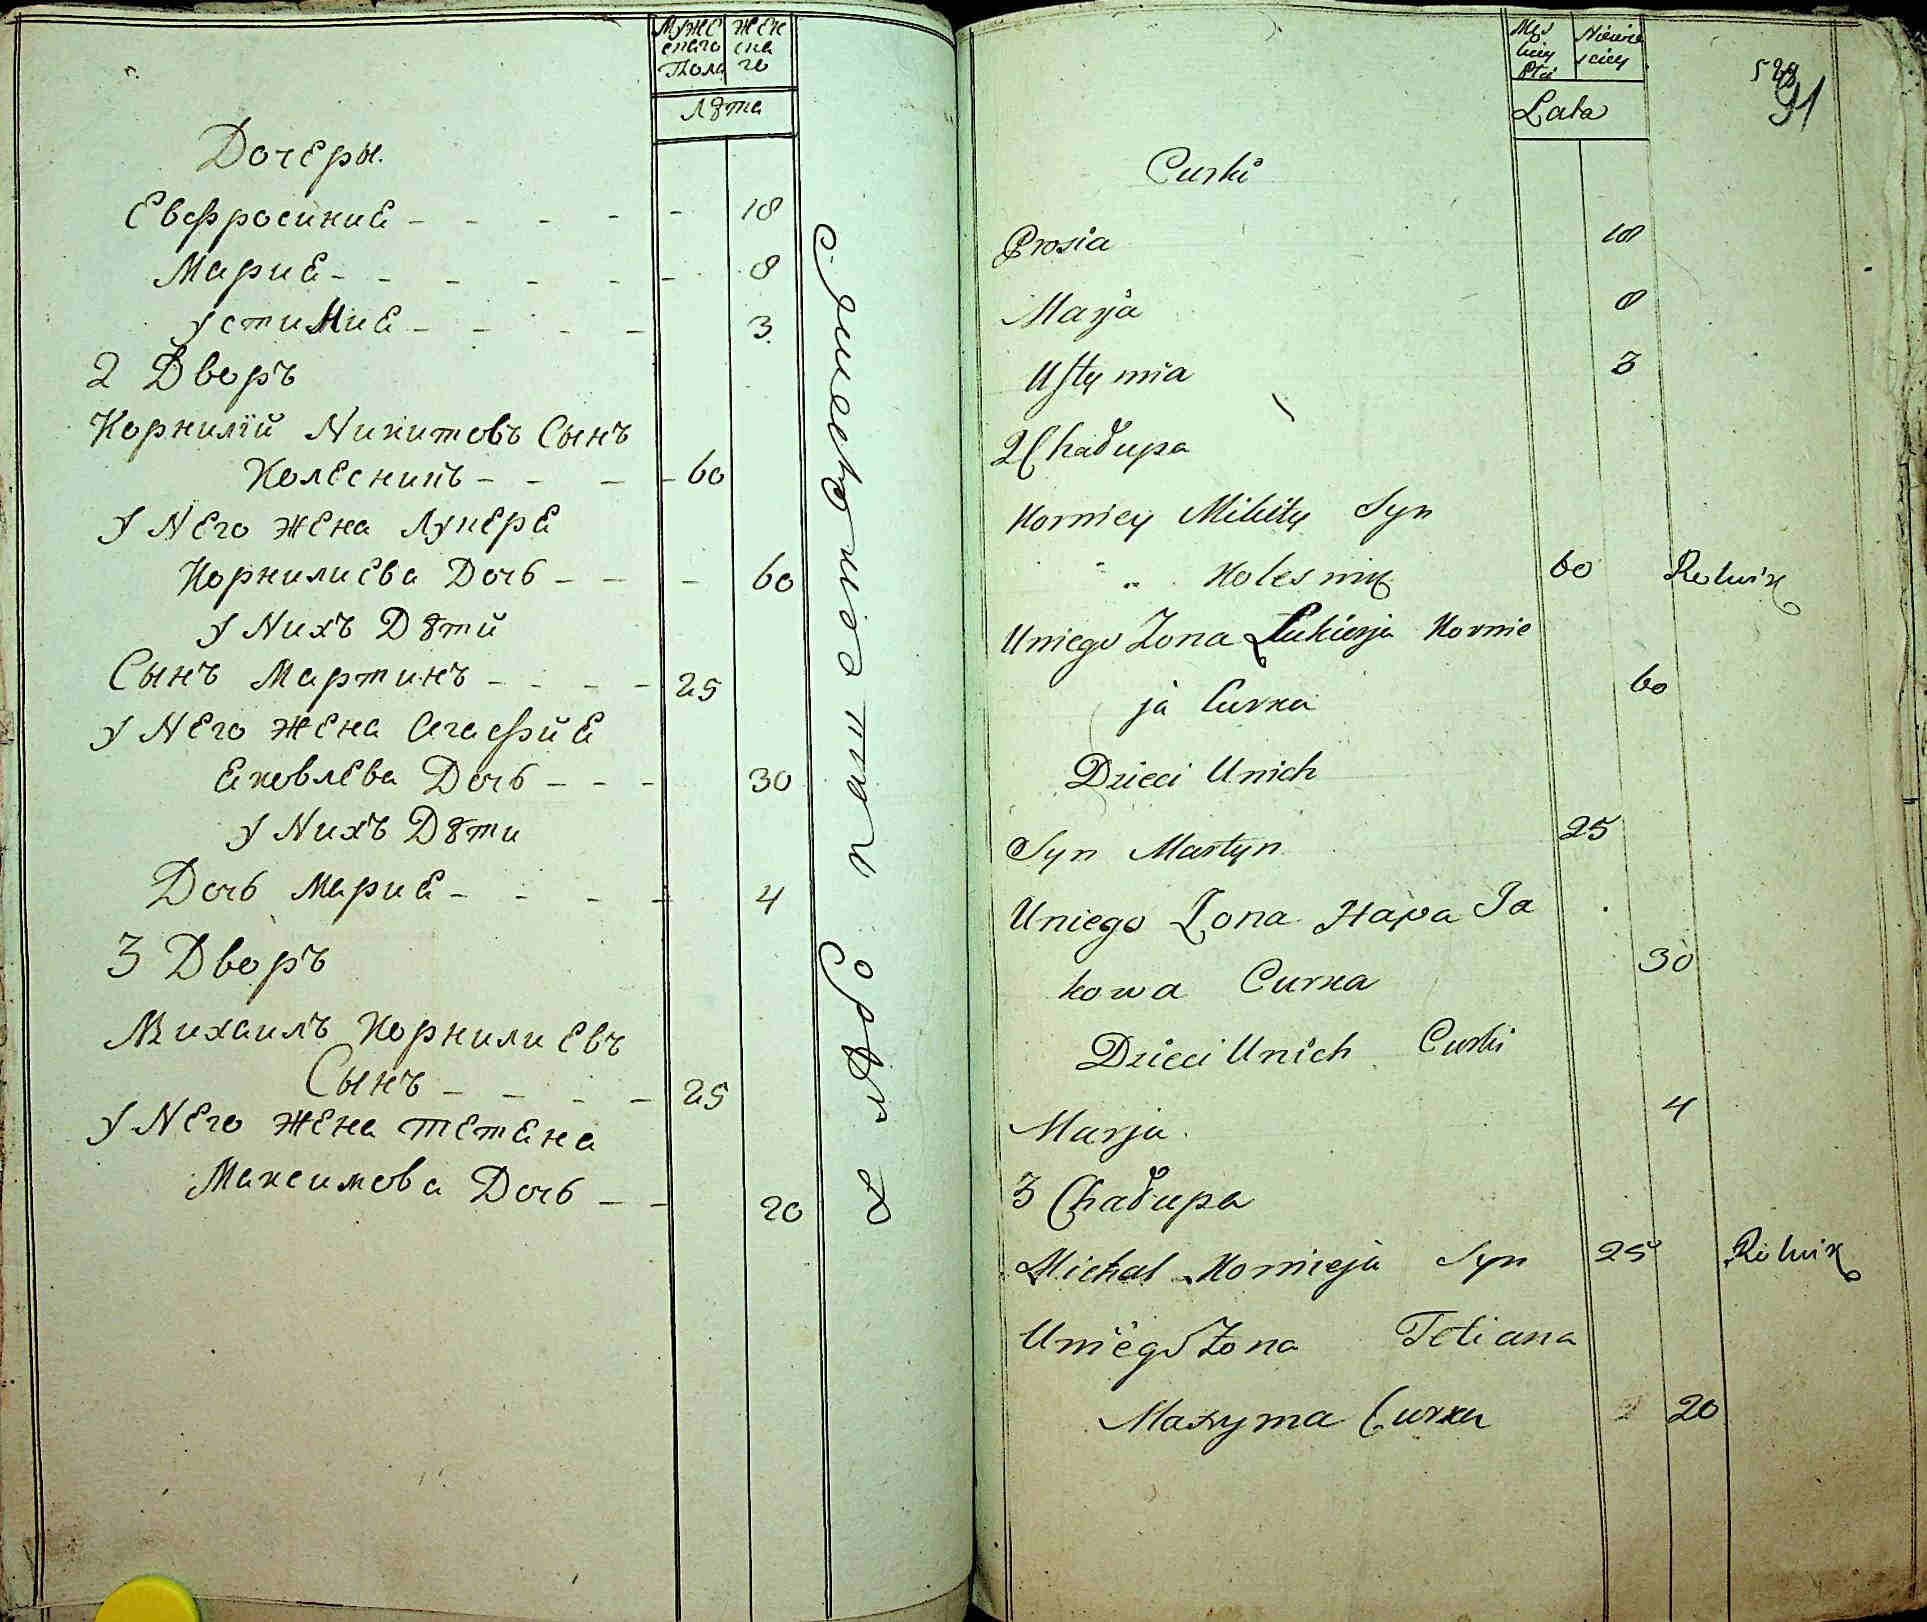 Муже скаго Пола
Жен ска го
Лѣта
Дочеры.
Евфросиниѣ - - - - - 18
Мариѣ - - - - - - 8
Устиниѣ - - - - - 3
2 Дворъ
Корнилій Никитовъ Сынъ
Колесникъ - - - - 60
У Него жена Лукерѣ
Корнилиева Дочь - - - 60
У Нихъ Дѣти
Сынъ Мартинъ - - - - 25
У Него жена Агафийѣ
Яковлева Дочь - - - 30
У Нихъ Дѣти
Дочь Мариѣ - - - - 4
3 Дворъ
Михаилъ Корнилиевъ
Сынъ - - - - - 25
У Него жена Тетяна
Максимова Дочь - - 20
Męs kiey Płci
Niewie sciey
Lata
91
Curki
Prosia 18
Marja 8
Ustymia 3
2 Chałupa
Korniey Mikity Syn
" " Kolesnik 60 Rolnik
Uniego Zona Lukierja Kornie
ja Curka 60
Dzieci Unich
Syn Martyn 25
Uniego Zona Hapa Ja
kowa Curka 30
Dzieci Unich Curki
Marja 4
3 Chałupa
Michał Kornieja Syn 25 Rolnik
Uniego Zona Tetiana
Maxyma Curka 20